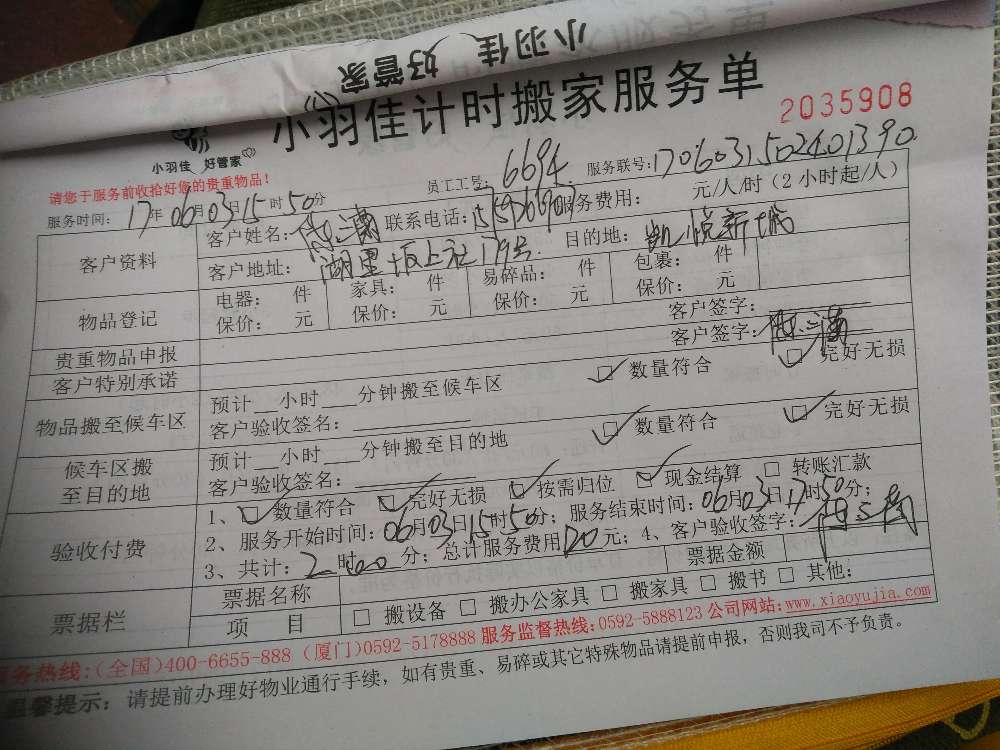 小羽佳 好管家
小羽佳计时搬家服务单
2035908
小羽佳 好管家
请您于服务前收拾好您的贵重物品！
员工工号：6694 服务联号：1706031502401390
服务时间：17年06月03日15时50分
客户资料 客户姓名： 联系电话： 服务费用： 元/人/时（2小时起/人）
客户地址：湖里坂上社179号 目的地：凯悦新城
物品登记 电器： 件 家具： 件 易碎品： 件 包裹： 件
保价： 元 保价： 元 保价： 元 保价： 元
贵重物品申报 客户签字：
客户特别承诺 客户签字：
物品搬至候车区 预计__小时___分钟搬至候车区 ☑ 数量符合 ☑ 完好无损
客户验收签名：
候车区搬至目的地 预计__小时___分钟搬至目的地 ☑ 数量符合 ☑ 完好无损
客户验收签名：
验收付费 1、☑ 数量符合 ☑ 完好无损 ☑ 按需归位 ☑ 现金结算 □ 转账汇款
2、服务开始时间：06月03日15时50分；服务结束时间：06月03日17时50分；
3、共计：2时00分；总计服务费用120元；4、客户验收签字：
票据栏 票据名称 票据金额
项目 □ 搬设备 □ 搬办公家具 □ 搬家具 □ 搬书 □ 其他：
服务热线：(全国)400-6655-888 (厦门)0592-5178888 服务监督热线:0592-5888123 公司网站:www.xiaoyujia.com
温馨提示：请提前办理好物业通行手续，如有贵重、易碎或其它特殊物品请提前申报，否则我司不予负责。